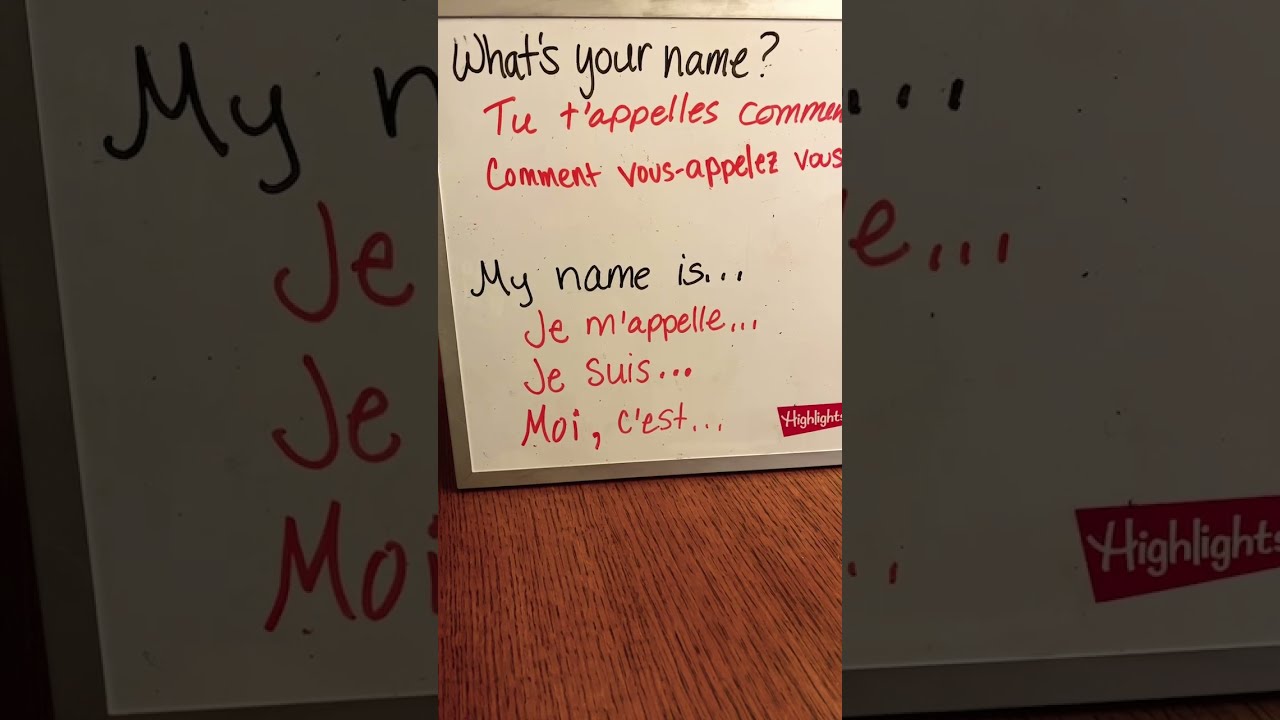 What's your name?
Tu t'appelles commen
Comment vous-appelez vous
My name is...
Je m'appelle...
Je suis...
Moi, c'est...
Highlights
My n
...
Je
e...
Je
Moi
..
Highlights